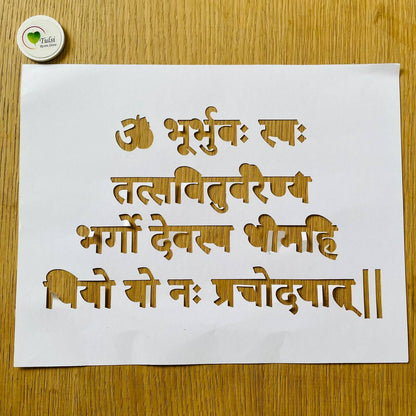 Tulsi
ॐ भूर्भुवः स्वः
तत्सवितुर्वरेण्यं
भर्गो देवस्य धीमहि
धियो यो नः प्रचोदयात् ||